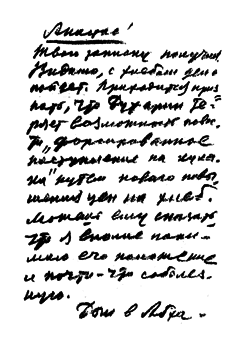 Анастас!
Твою записку получил.
Видимо, с хлебом дело
пойдет. Приходится приз
нать, что Бухарин те-
ряет возможность повес-
ти „форсированное
наступление на кула-
ка" путем нового повы-
шения цен на хлеб.
Можешь ему сказать,
что я вполне пони-
маю его положение
и почти-что соболез-
ную.
в